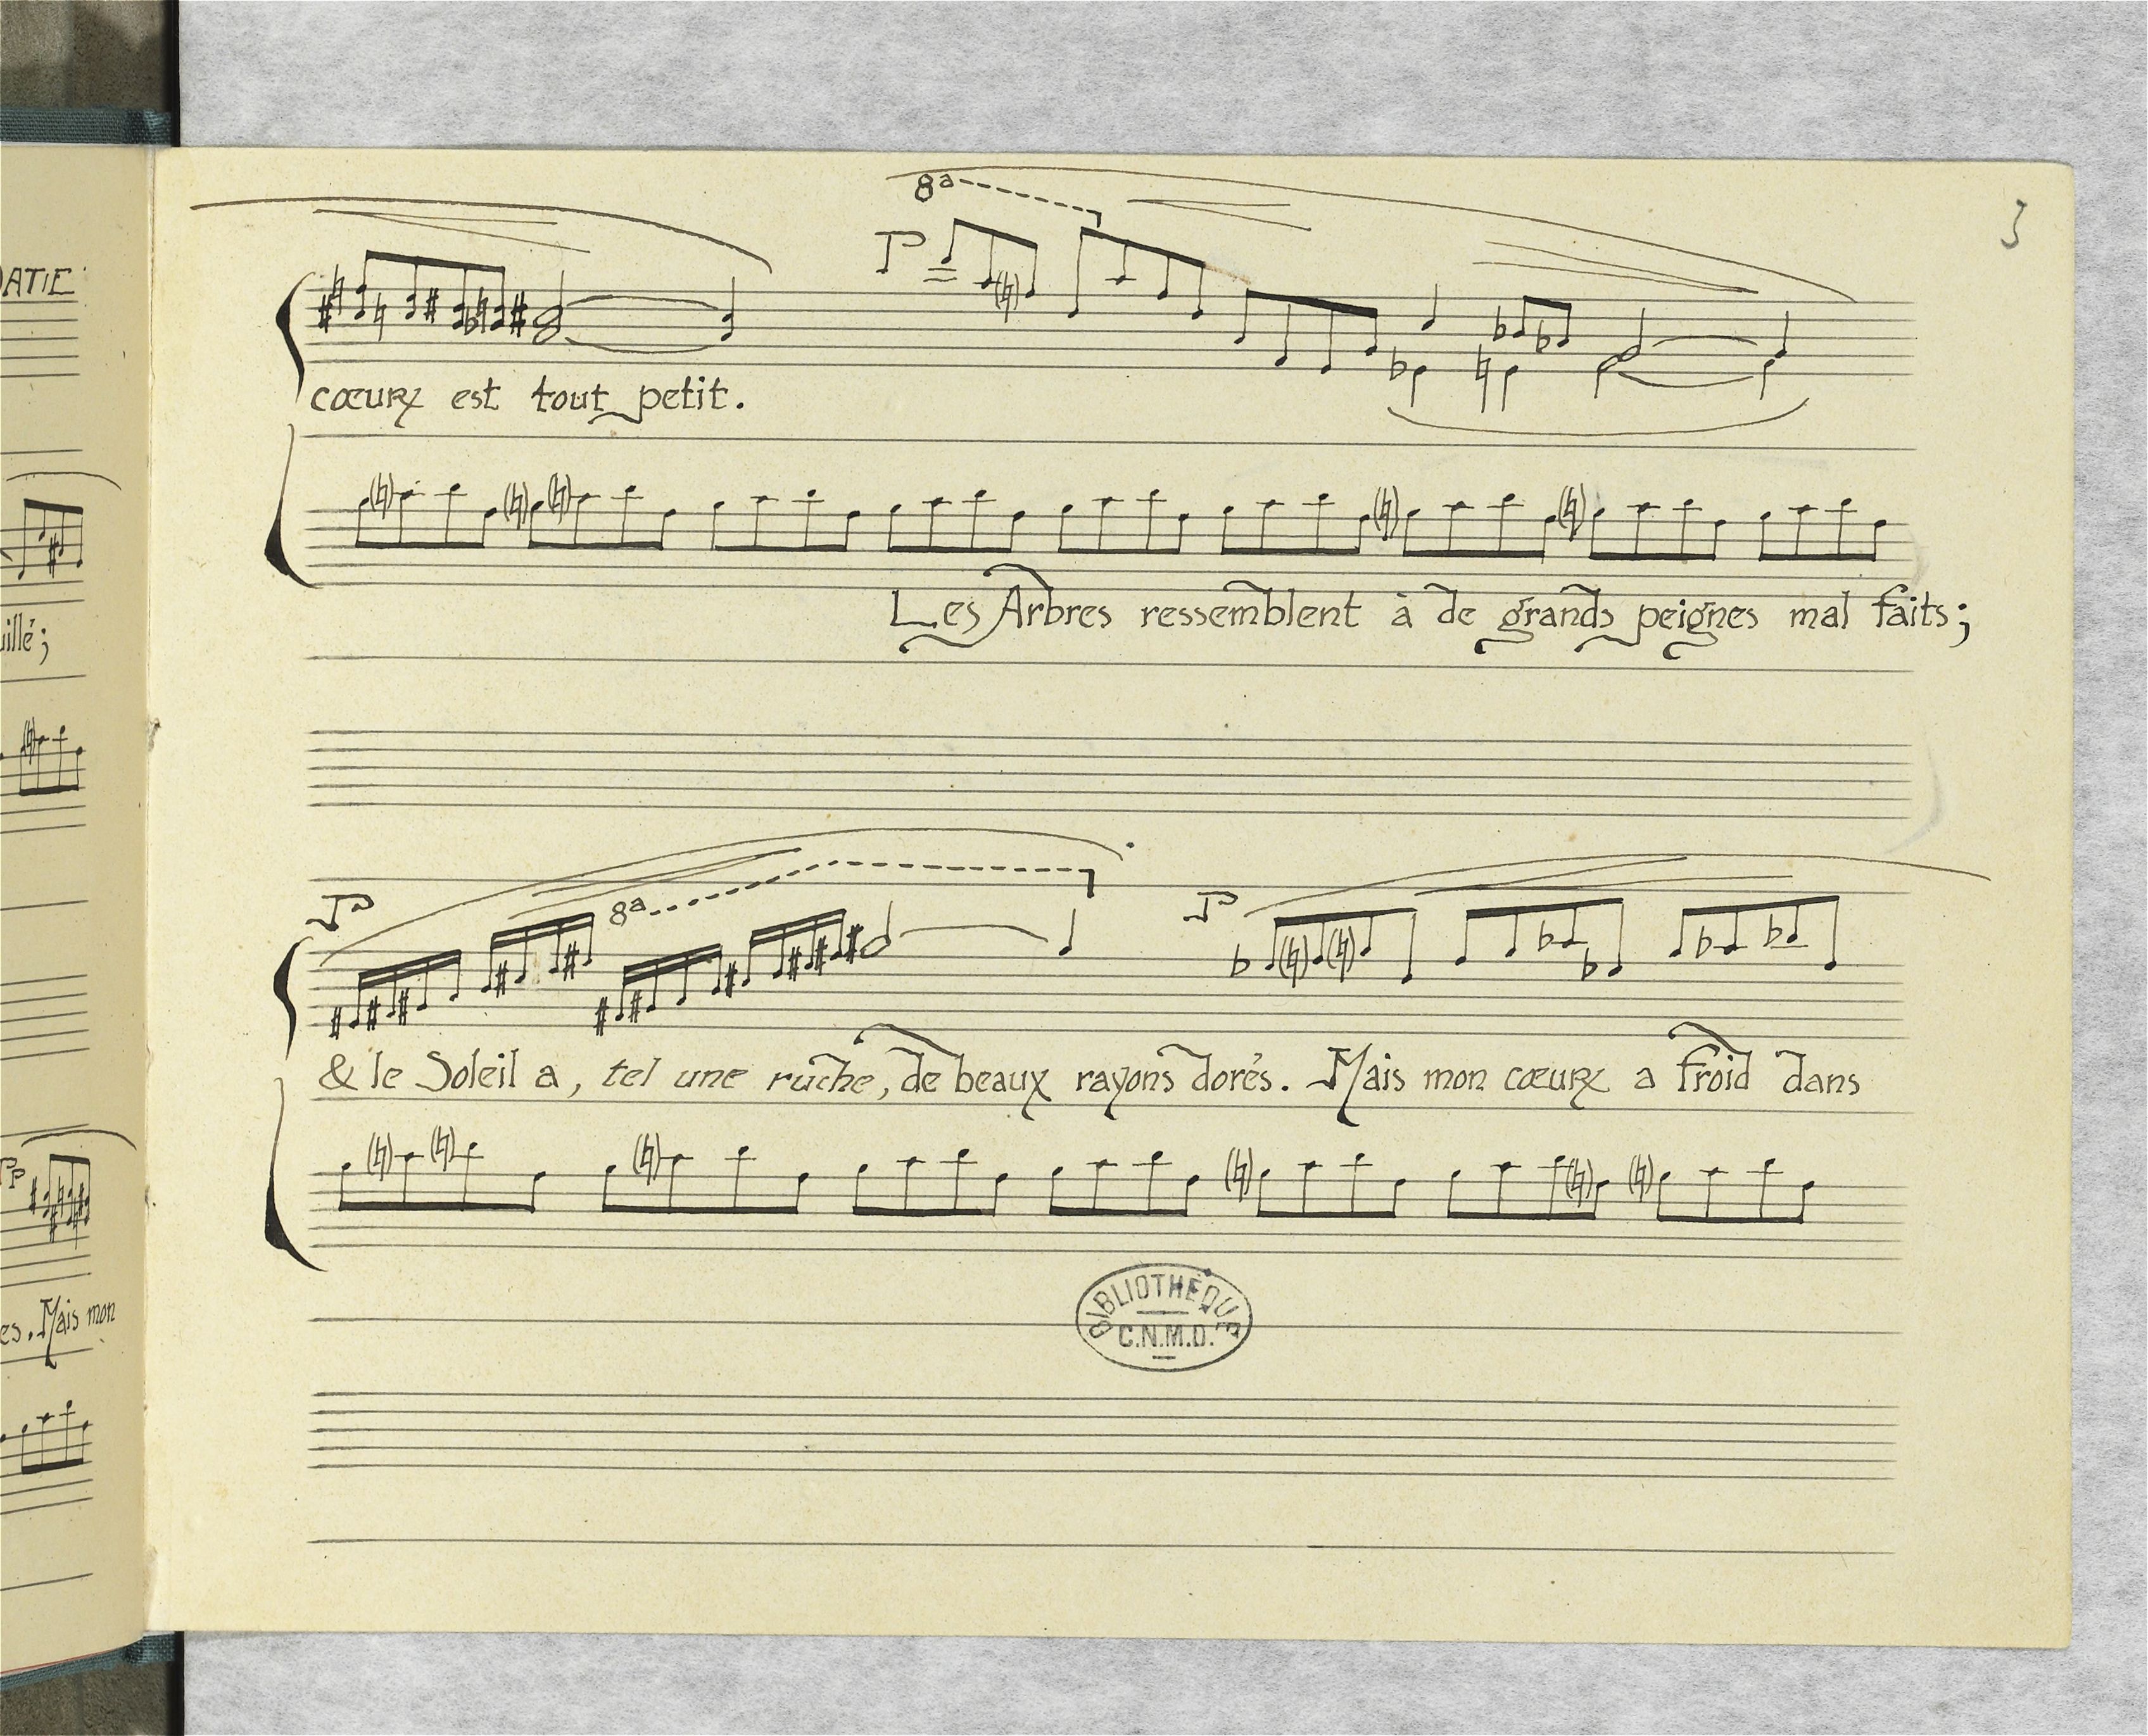 3
8ª
P
cœur est tout petit.
Les Arbres ressemblent à de grands peignes mal faits;
P
8ª
P
& le Soleil a, tel une ruche, de beaux rayons dorés. Mais mon cœur a froid dans
BIBLIOTHÈQUE
C.N.M.D.
es. Mais mon